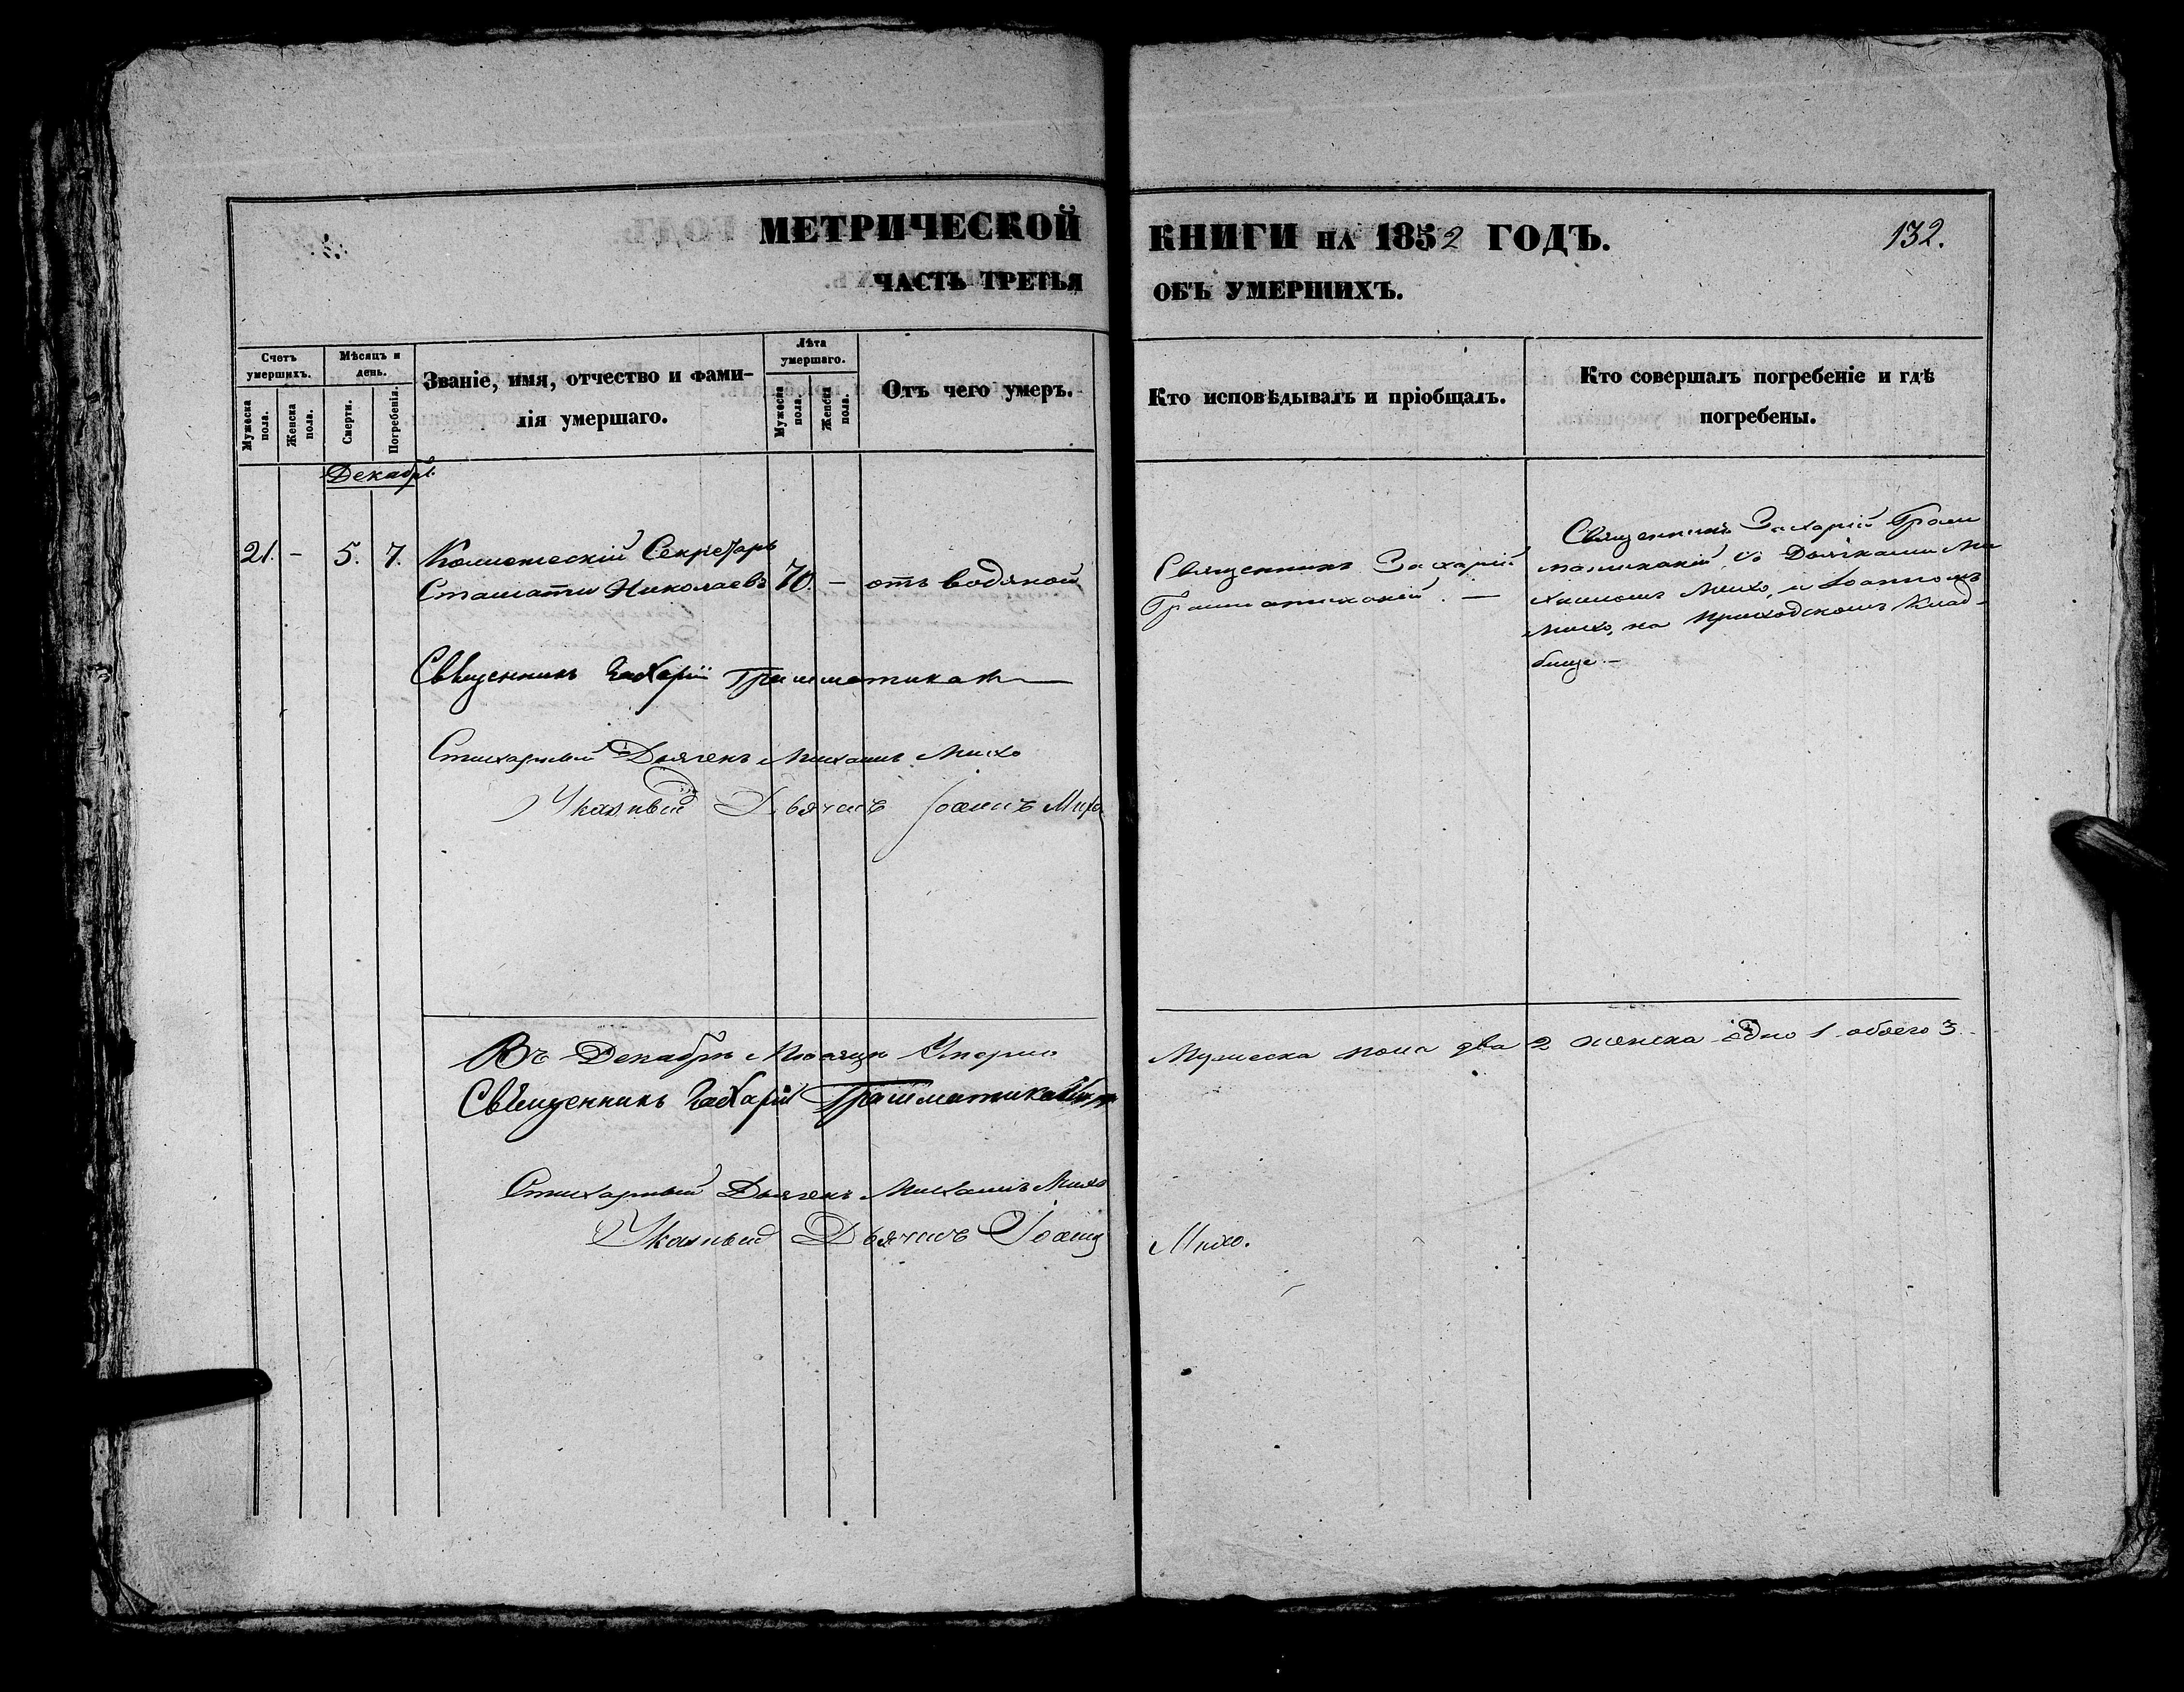 МЕТРИЧЕСКОЙ КНИГИ НА 1852 ГОДЪ.
132.
ЧАСТЬ ТРЕТЬЯ ОБЪ УМЕРШИХЪ.
Счетъ умершихъ.
Мужеска пола.
Женска пола.
Мѣсяцъ и день.
Смерти.
Погребенія.
Званіе, имя, отчество и фами-
лія умершаго.
Лѣта умершаго.
Мужеска пола.
Женска пола.
Отъ чего умеръ.
Кто исповѣдывалъ и пріобщалъ.
Кто совершалъ погребеніе и гдѣ
погребены.
Декабрь
21. - 5. 7.
Секретарь
Стаматти Николаевъ
70. -
отъ водяной
Священникъ Захарій
Грамматикакій. —
Священникъ Захарій Грам
матикакій, съ Дьячками Ми
хаиломъ Михо, и Іоанномъ
Михо, на приходскомъ клад-
бище. —
Священникъ Захарій Грамматикакій
Стихарный Дьячекъ Михаилъ Михо
Указный Дьячикъ Іоаннъ Михо
Въ Декабрѣ Мѣсяцѣ Умерло
Мужеска пола два 2 женска одно 1 обоего 3.
Священникъ Захарій Грамматикакій
Стихарный Дьячекъ Михаилъ Михо
Указный Дьячикъ Іоаннъ Михо.